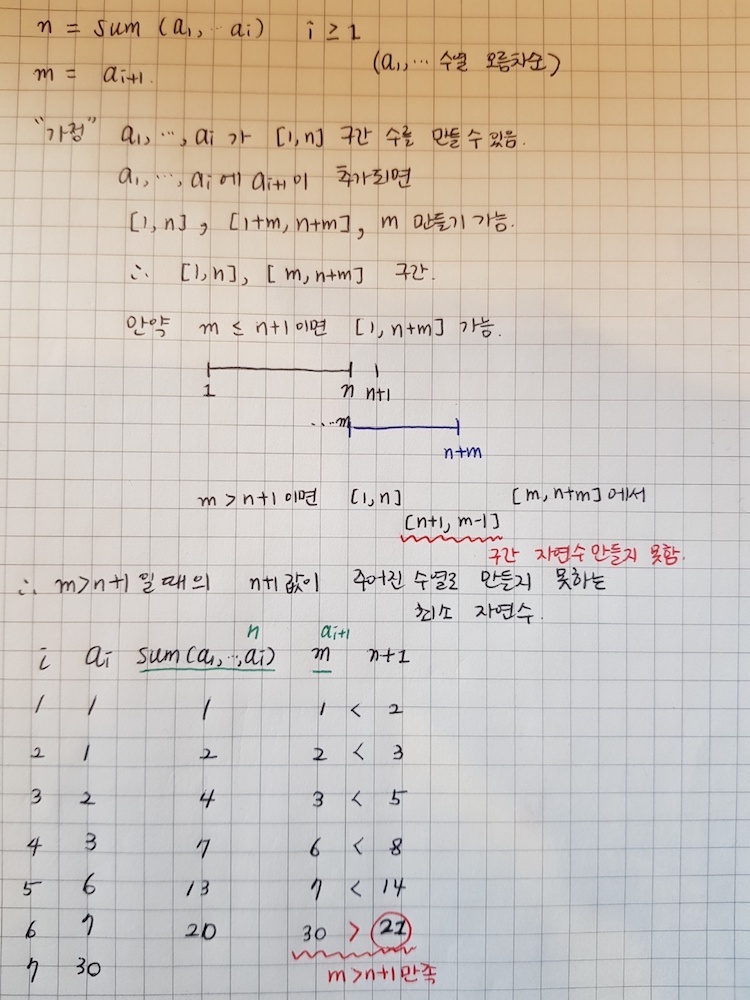 n = sum (a1, ⋯ ai)   i ≥ 1
(a1, ⋯ 수열 오름차순)
m = ai+1.
"가정" a1, ⋯, ai 가 [1,n] 구간 수를 만들 수 있음.
a1, ⋯, ai 에 ai+1이 추가되면
[1,n], [1+m, n+m], m 만들기 가능.
∴ [1,n], [m, n+m] 구간.
만약 m ≤ n+1 이면 [1, n+m] 가능.
1 n n+1
⋯m
n+m
m > n+1 이면 [1,n] [m, n+m] 에서
[n+1, m-1]
구간 자연수 만들지 못함.
∴ m>n+1 일 때의 n+1 값이 주어진 수열로 만들지 못하는
최소 자연수.
n ai+1
i ai sum(a1, ⋯, ai) m n+1
1 1 1 1 < 2
2 1 2 2 < 3
3 2 4 3 < 5
4 3 7 6 < 8
5 6 13 7 < 14
6 7 20 30 > 21
7 30 m>n+1 만족